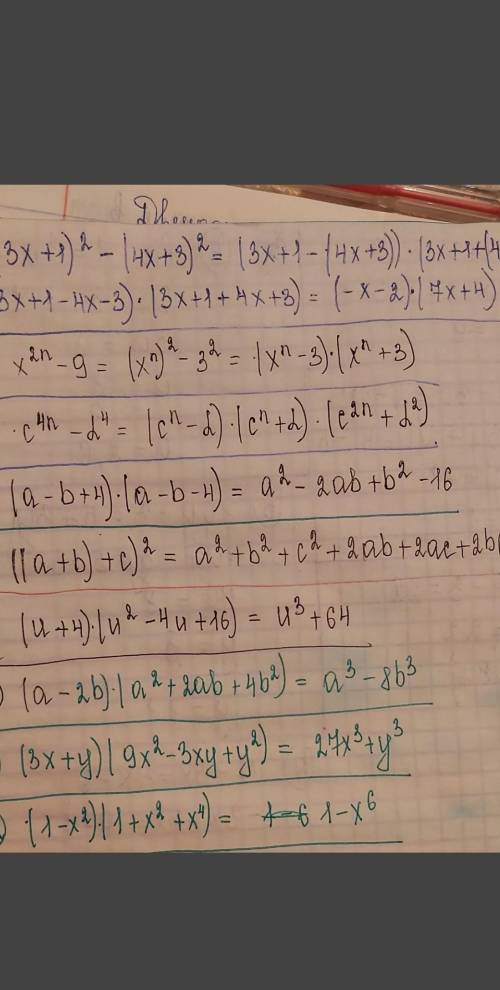 3x+1)² - (4x+3)² = (3x+1-(4x+3)) · (3x+1+(4
3x+1-4x-3) · (3x+1+4x+3) = (-x-2)·(7x+4)
x²ⁿ - 9 = (xⁿ)² - 3² = (xⁿ-3)·(xⁿ+3)
c⁴ⁿ - d⁴ = (cⁿ-d)·(cⁿ+d)·(c²ⁿ+d²)
(a-b+4)·(a-b-4) = a² - 2ab + b² - 16
((a+b)+c)² = a² + b² + c² + 2ab + 2ac + 2b
(u+4)·(u²-4u+16) = u³+64
) (a-2b)·(a²+2ab+4b²) = a³ - 8b³
(3x+y)(9x²-3xy+y²) = 27x³+y³
) (1-x²)·(1+x²+x⁴) = 1-x⁶